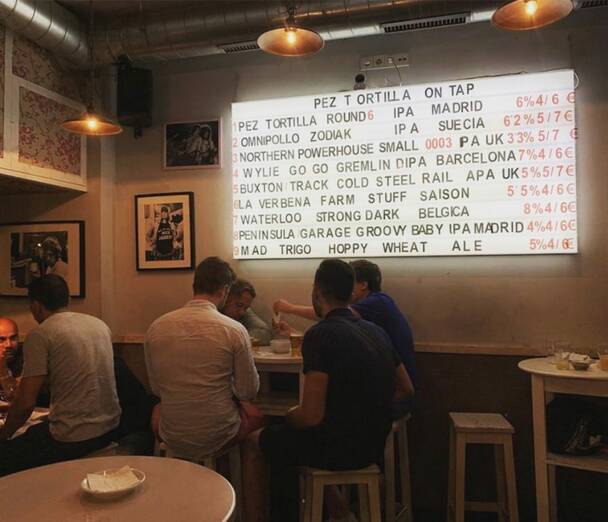 PEZ TORTILLA ON TAP
1 PEZ TORTILLA ROUND6 IPA MADRID 6% 4/6 €
2 OMNIPOLLO ZODIAK IPA SUECIA 6'2% 5/7 €
3 NORTHERN POWERHOUSE SMALL 0003 PA UK 3'3% 5/7 €
4 WYLIE GO GO GREMLIN DIPA BARCELONA 7% 4/6 €
5 BUXTON/TRACK COLD STEEL RAIL APA UK 5% 5/7 €
6 LA VERBENA FARM STUFF SAISON 5'5% 4/6 €
7 WATERLOO STRONG DARK BELGICA 8% 4/6 €
8 PENINSULA/GARAGE GROOVY BABY IPA MADRID 4% 4/6 €
9 MAD TRIGO HOPPY WHEAT ALE 5% 4/6 €